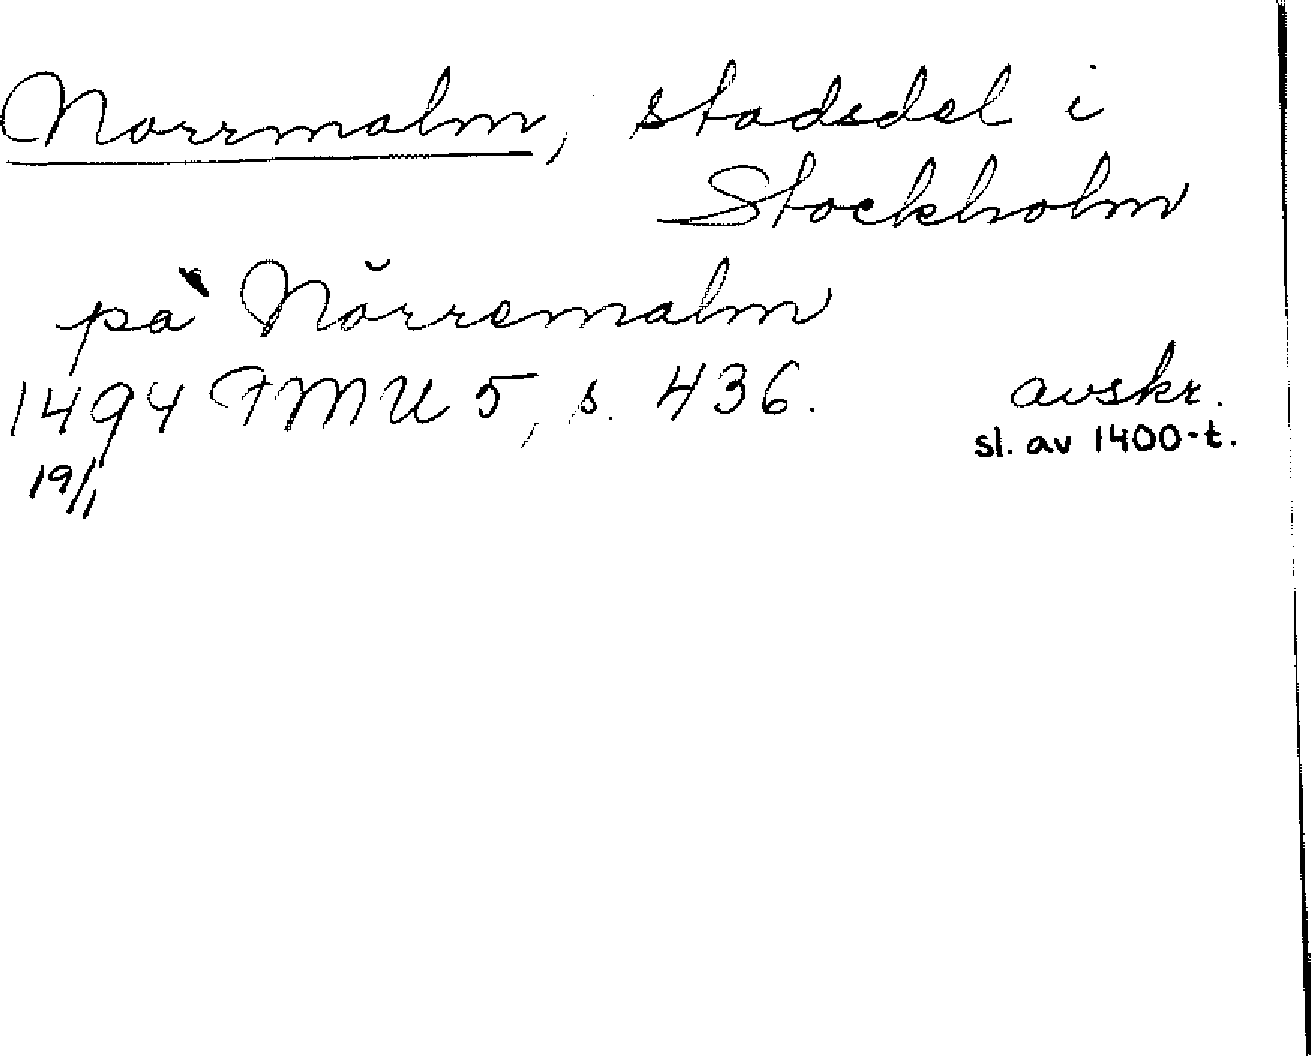 Norrmalm, stadsdel i
Stockholm
på Nörremalm
1494 FMU 5, s. 436. avskr.
19/1 sl. av 1400-t.